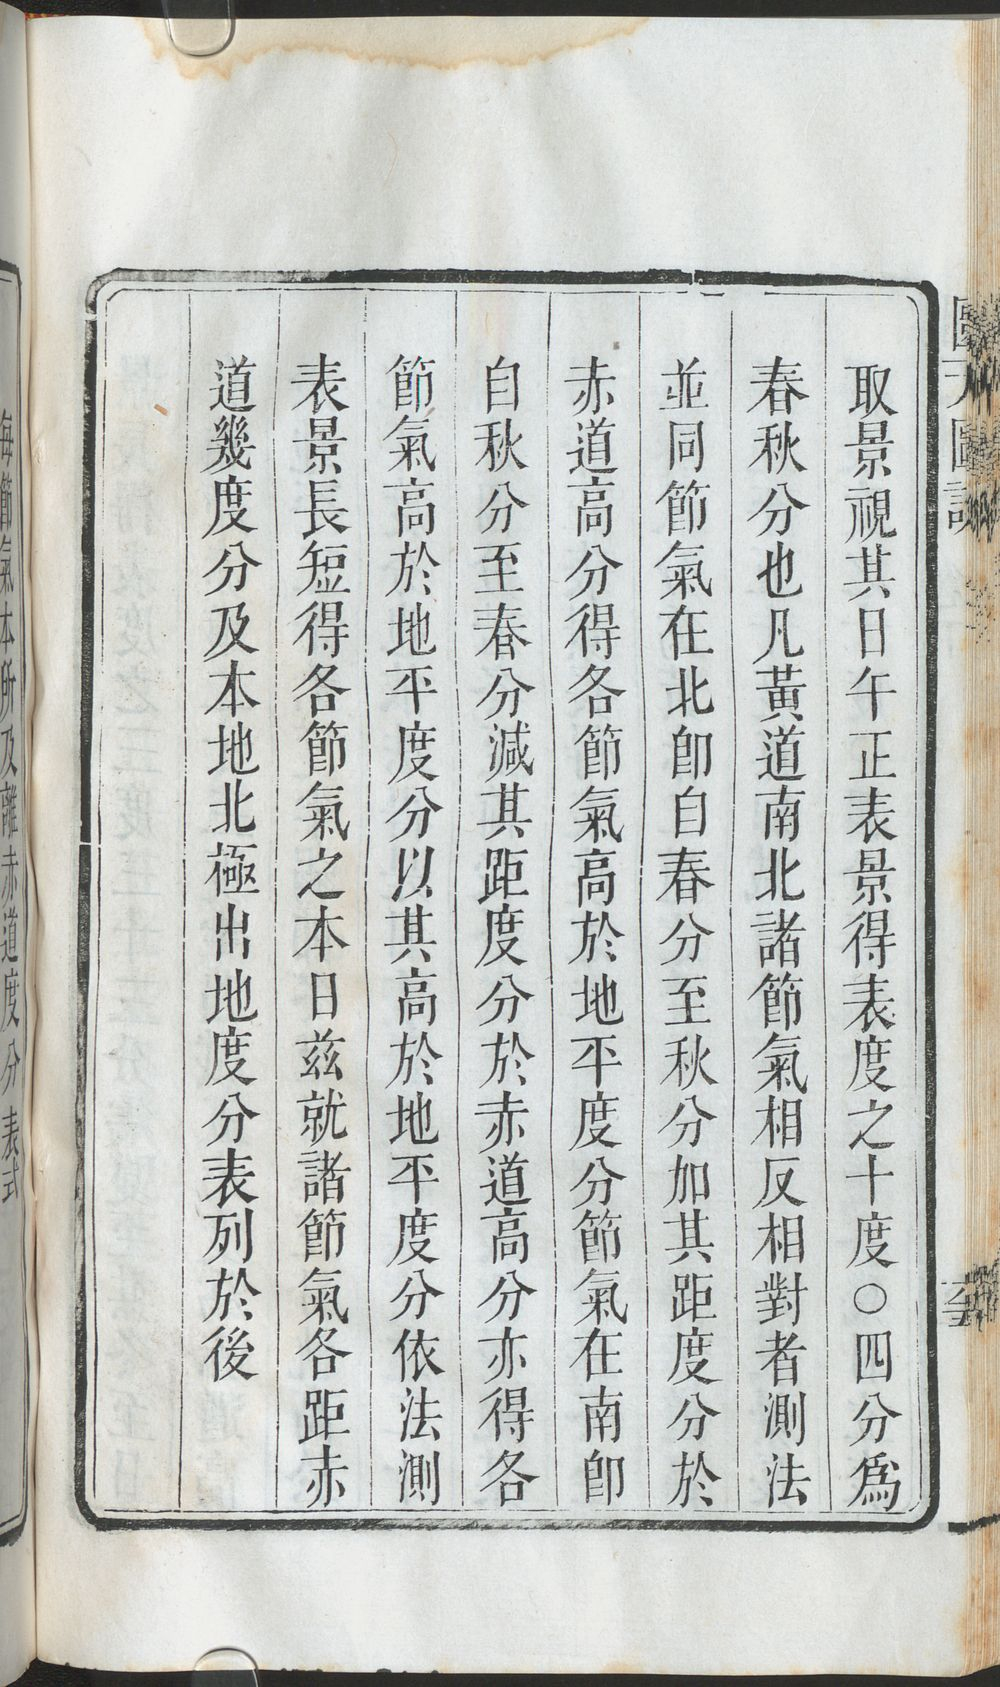 取景視其日午正表景得表度之十度○四分爲
春秋分也凡黃道南北諸節氣相反相對者測法
並同節氣在北卽自春分至秋分加其距度分於
赤道高分得各節氣高於地平度分節氣在南卽
自秋分至春分減其距度分於赤道高分亦得各
節氣高於地平度分以其高於地平度分依法測
表景長短得各節氣之本日茲就諸節氣各距赤
道幾度分及本地北極出地度分表列於後
每節氣本所及離赤道度分表式